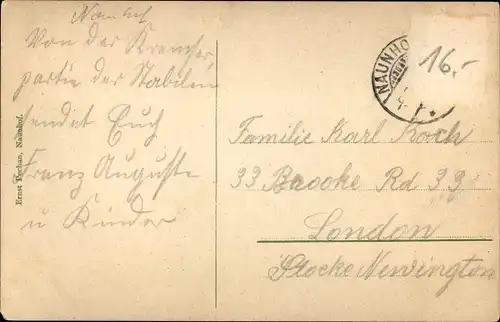 Naunhof
Von der Kremser
partie der Stabilen
sendet Euch
Franz Auguste
u Kinder
Ernst Bochan, Naunhof.
NAUNHO
16.-
Familie Karl Koch
33 Brooke Rd 33
London
Stocke Newington